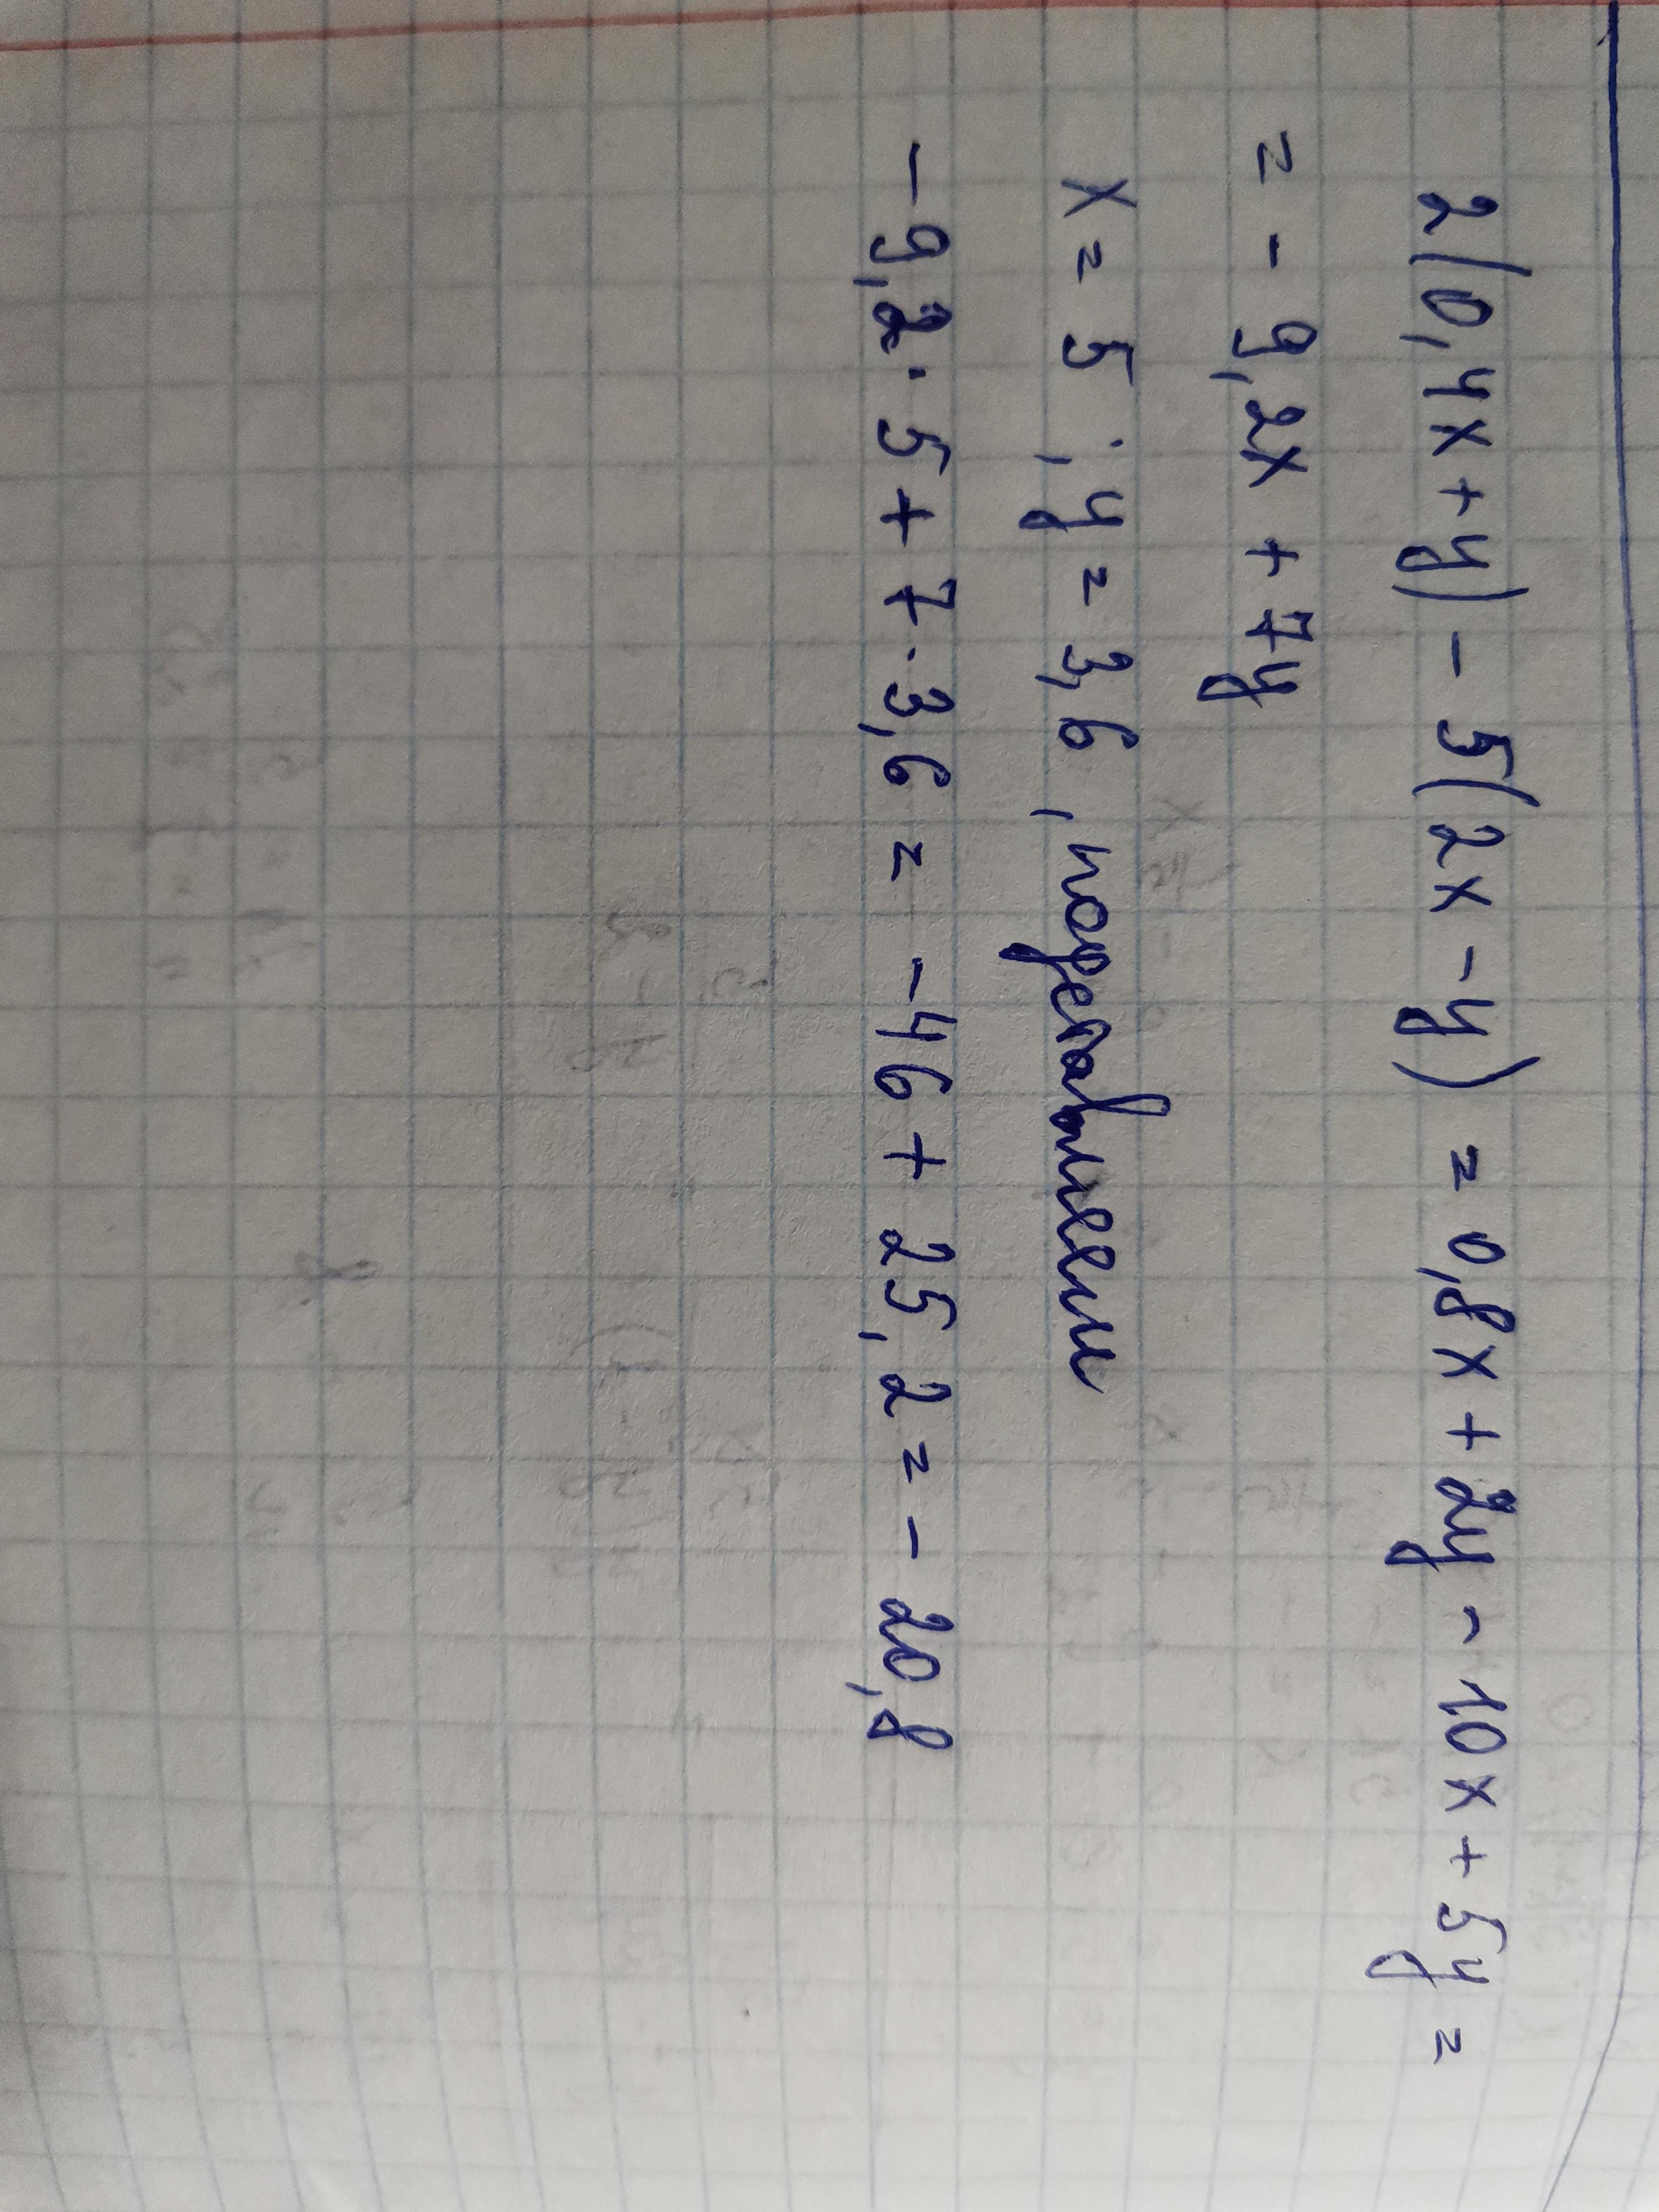 2(0,4x+y) - 5(2x-y) = 0,8x + 2y - 10x + 5y =
= - 9,2x + 7y
x = 5 ; y = 3,6 , подставляем
-9,2·5 + 7·3,6 = -46 + 25,2 = - 20,8